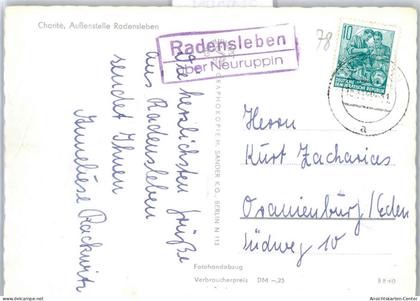 Charité, Außenstelle Radensleben
Radensleben
über Neuruppin
78
10
DEUTSCHE
DEMOKRATISCHE REPUBLIK
a
Die herzlichsten Grüße
aus Radensleben
sendet Ihnen
Anneliese
H. SANDER K.G., BERLIN N 113
Herrn
Kurt Zacharias
Oranienburg/Eden
Südweg 10
Fotohandabzug
Verbraucherpreis DM –,25
B 8/60
Ansichtskarten-Center